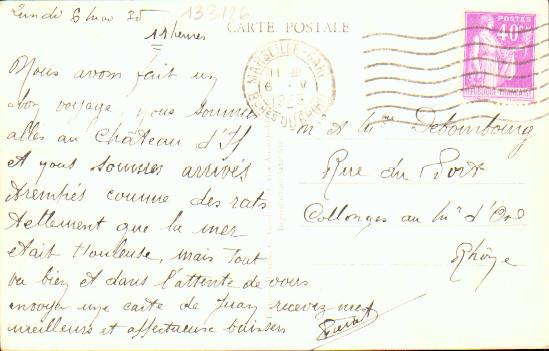 Lundi 6 mai 35
133126
11 heures
CARTE POSTALE
POSTES
40c
REPUBLIQUE FRANCAISE
MARSEILLE-GARE
11
6 - V
1935
BCHES DU RHONE
Nous avons fait un
bon voyage, nous sommes
allés au Château d'If
et nous sommes arrivés
trempés comme des rats
tellement que la mer
était houleuse, mais tout
va bien et dans l'attente de vous
envoyer une carte de Juan recevez nos
meilleurs et affectueux baisers
M et Mme Debombourg
Rue du Port
Collonges au Mt d'Or
Rhône